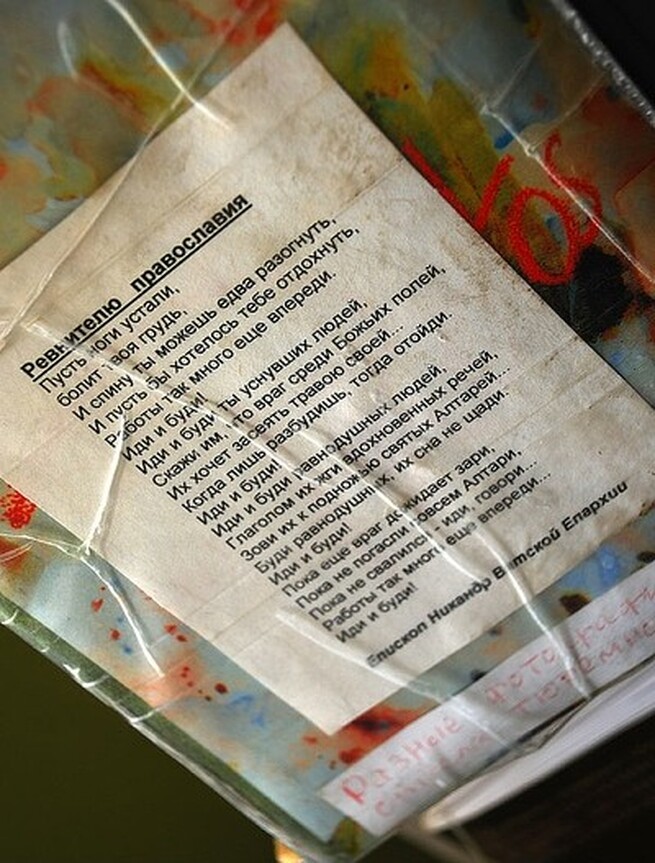 Ревнителю православия
Пусть ноги устали,
болит твоя грудь,
И спину ты можешь едва разогнуть,
И пусть бы хотелось тебе отдохнуть,
Работы так много еще впереди.
Иди и буди!
Иди и буди ты уснувших людей,
Скажи им, что враг среди Божьих полей,
Их хочет засеять травою своей...
Когда лишь разбудишь, тогда отойди.
Иди и буди!
Иди и буди равнодушных людей,
Глаголом их жги вдохновенных речей,
Зови их к подножью святых Алтарей...
Буди равнодушных, их сна не щади
Иди и буди!
Пока еще враг дожидает зари,
Пока не погасли совсем Алтари,
Пока не свалился - иди, говори...
Работы так много еще впереди...
Иди и буди!
Епископ Никандр Вятской Епархии
Разные